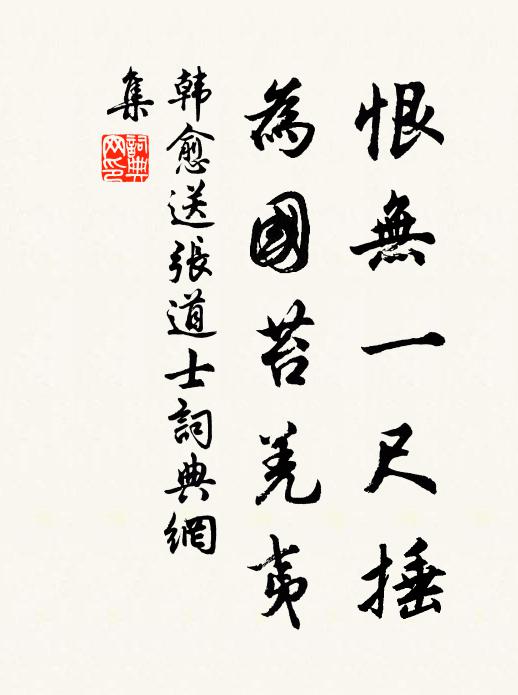 恨無一尺捶
為國苔羌夷
韓愈送張道士詞典網
集
詞典網印